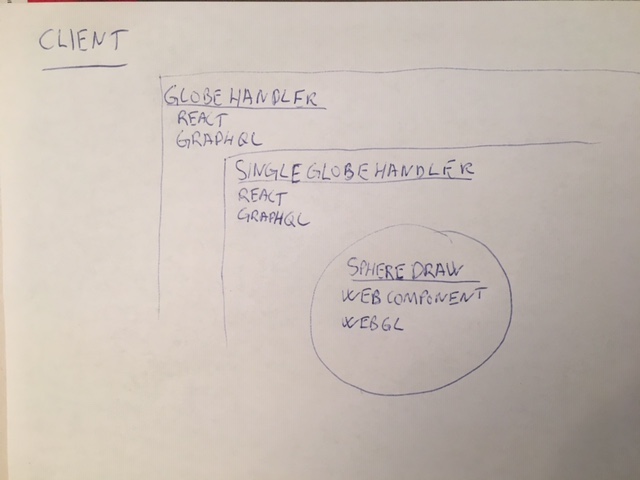 CLIENT
GLOBE HANDLER
REACT
GRAPHQL
SINGLE GLOBE HANDLER
REACT
GRAPHQL
SPHERE DRAW
WEB COMPONENT
WEBGL